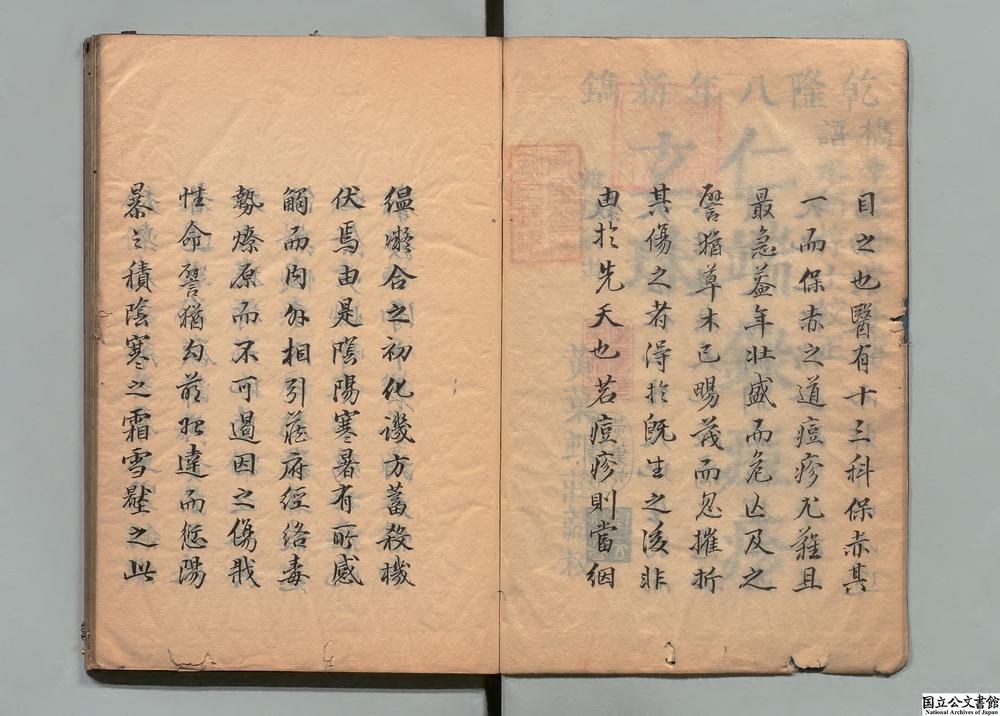 目之也醫有十三科保赤其
一而保赤之道痘疹尤難且
最急蓋年壯盛而危亡及之
譬猶草木已暢茂而忽摧折
其傷之者得於既生之後非
由於先天也若痘疹則當絪
縕凝合之初化譏方蓄殺機
伏焉由是陰陽寒暑有所感
觸而內外相引藏府經絡毒
勢燎原而不可遏因之傷戕
性命譬猶勾萌始達而愆陽
暴之積陰寒之霜雪壓之此
乾隆八年新鐫
仁端錄痘疹
国立公文書館
National Archives of Japan